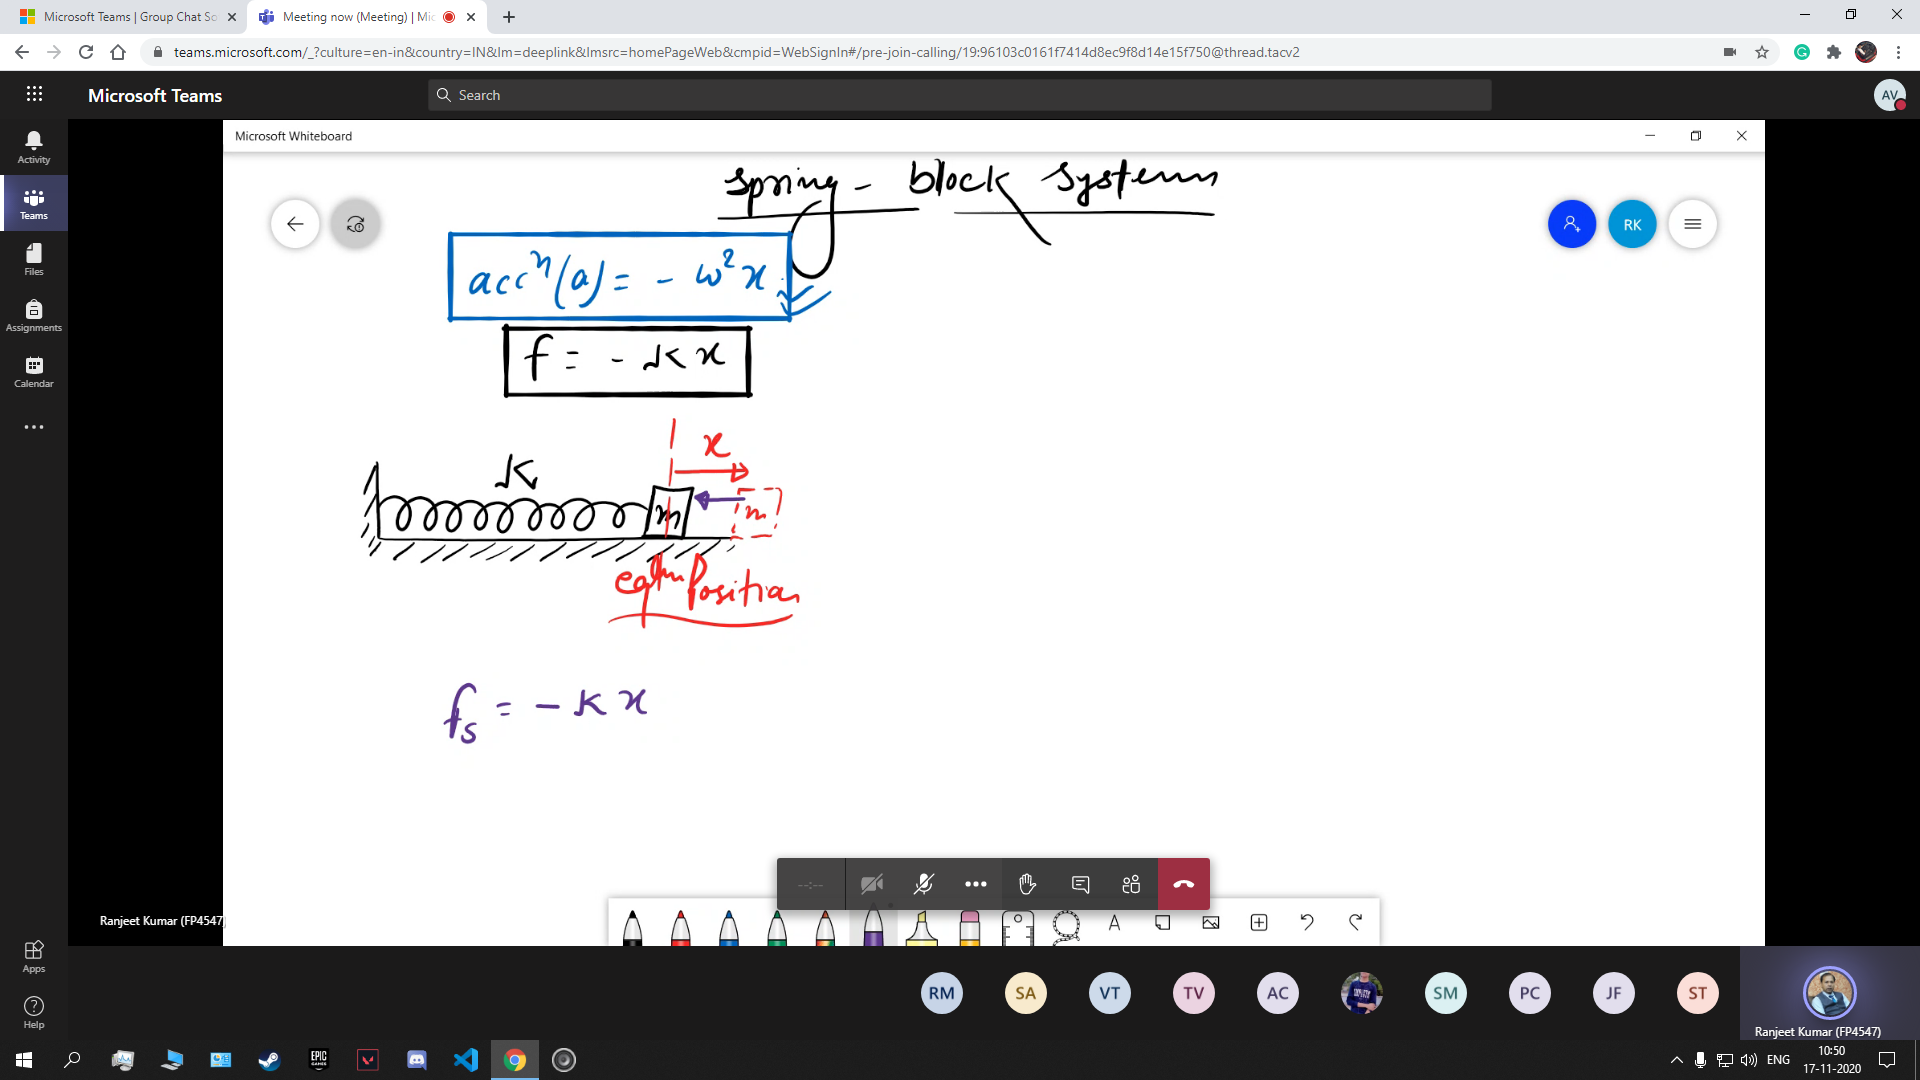 Microsoft Teams | Group Chat So
Meeting now (Meeting) | Mic
teams.microsoft.com/_?culture=en-in&country=IN&lm=deeplink&lmsrc=homePageWeb&cmpid=WebSignIn#/pre-join-calling/19:96103c0161f7414d8ec9f8d14e15f750@thread.tacv2
Microsoft Teams
Search
AV
Activity
Teams
Files
Assignments
Calendar
Apps
Help
Microsoft Whiteboard
RK
Spring - block System
accⁿ(a) = - ω²x
f = - Kx
K
x
m
m
eqlm Position
fs = - Kx
--:--
A
Ranjeet Kumar (FP4547)
RM
SA
VT
TV
AC
SM
PC
JF
ST
Ranjeet Kumar (FP4547)
EPIC
GAMES
ENG
10:50
17-11-2020